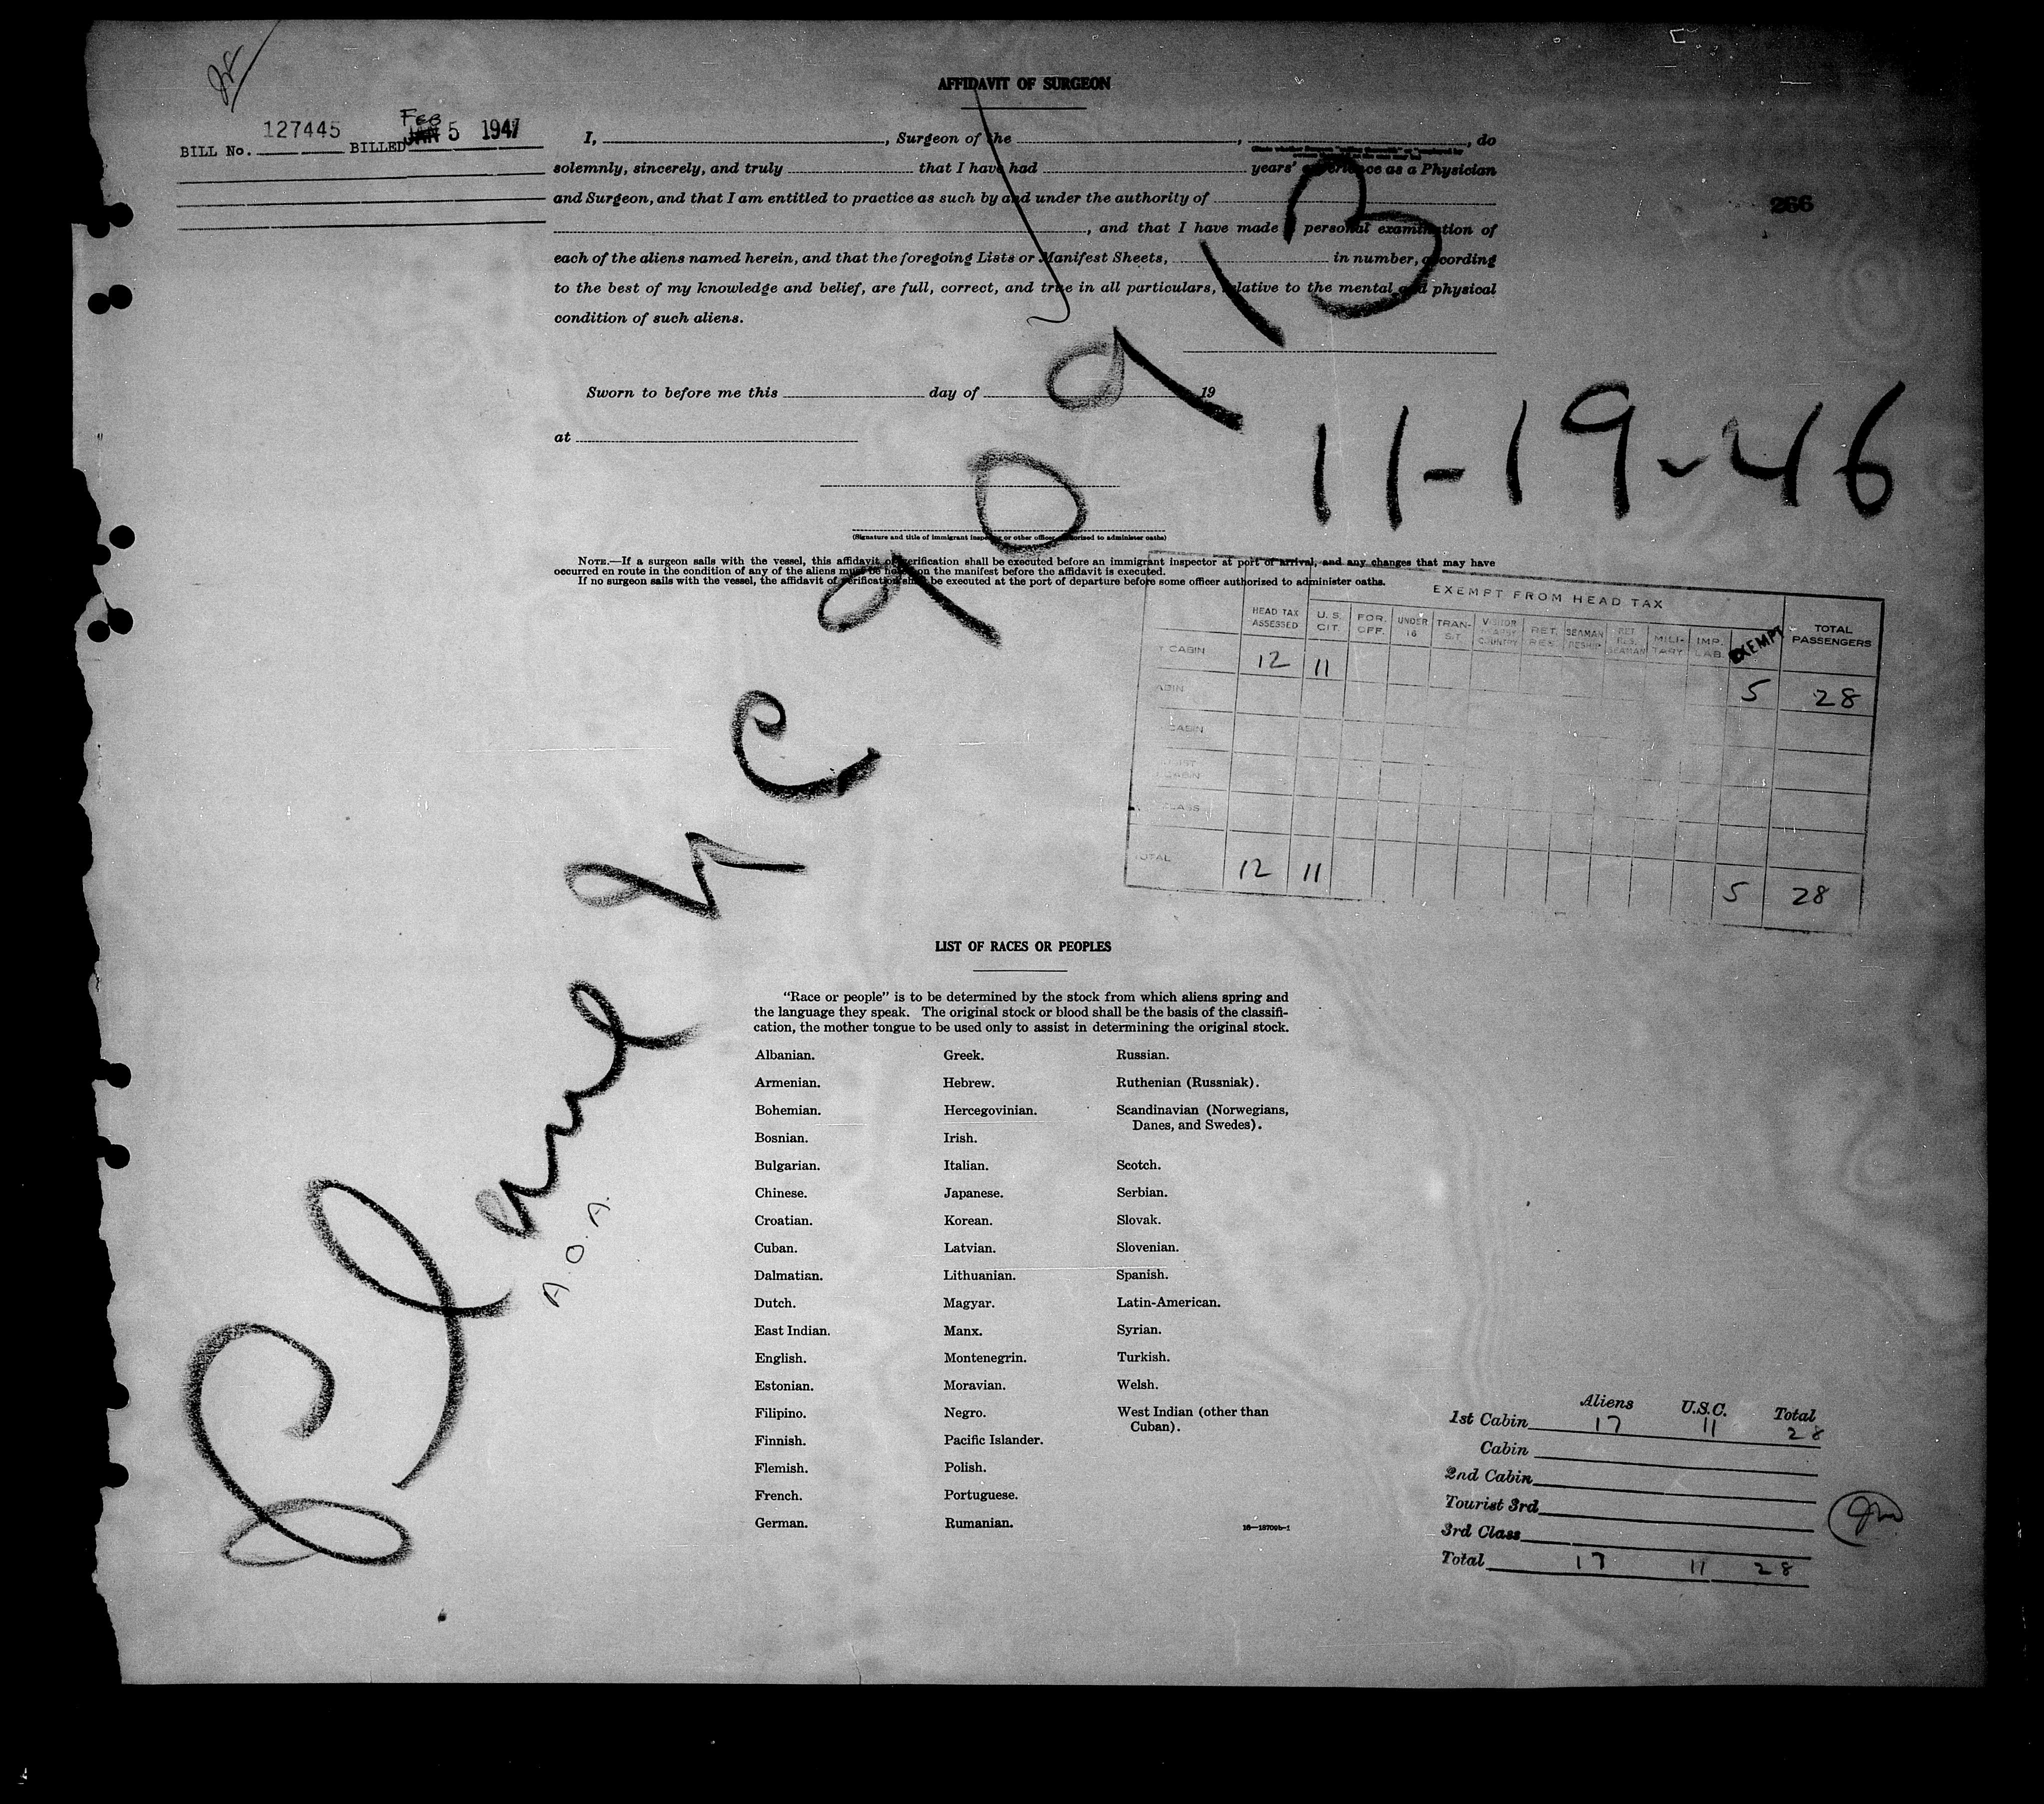 AFFIDAVIT OF SURGEON
BILL No. 127445 BILLED Feb JAN 5 1947
I, , Surgeon of the , , do
solemnly, sincerely, and truly that I have had years' experience as a Physician
and Surgeon, and that I am entitled to practice as such by and under the authority of
, and that I have made a personal examination of
each of the aliens named herein, and that the foregoing Lists or Manifest Sheets, in number, according
to the best of my knowledge and belief, are full, correct, and true in all particulars, relative to the mental and physical
condition of such aliens.
266
Sworn to before me this day of 19
at
11-19-46
(Signature and title of immigrant inspector or other officer authorized to administer oaths)
NOTE.—If a surgeon sails with the vessel, this affidavit of verification shall be executed before an immigrant inspector at port of arrival, and any changes that may have
occurred en route in the condition of any of the aliens must be noted on the manifest before the affidavit is executed.
If no surgeon sails with the vessel, the affidavit of verification shall be executed at the port of departure before some officer authorized to administer oaths.
EXEMPT FROM HEAD TAX
HEAD TAX ASSESSED U. S. CIT. FOR. OFF. UNDER 16 TRAN-SIT VISITOR COUNTRY RET. RES. SEAMAN RESHIP RET. RES. SEAMAN MILI-TARY IMP. LAB. EXEMPT TOTAL PASSENGERS
CABIN 12 11 5 28
CABIN
CABIN
CABIN
CLASS
TOTAL 12 11 5 28
Plane
A.O.A.
LIST OF RACES OR PEOPLES
"Race or people" is to be determined by the stock from which aliens spring and
the language they speak. The original stock or blood shall be the basis of the classifi-
cation, the mother tongue to be used only to assist in determining the original stock.
Albanian.
Armenian.
Bohemian.
Bosnian.
Bulgarian.
Chinese.
Croatian.
Cuban.
Dalmatian.
Dutch.
East Indian.
English.
Estonian.
Filipino.
Finnish.
Flemish.
French.
German.
Greek.
Hebrew.
Hercegovinian.
Irish.
Italian.
Japanese.
Korean.
Latvian.
Lithuanian.
Magyar.
Manx.
Montenegrin.
Moravian.
Negro.
Pacific Islander.
Polish.
Portuguese.
Rumanian.
Russian.
Ruthenian (Russniak).
Scandinavian (Norwegians,
Danes, and Swedes).
Scotch.
Serbian.
Slovak.
Slovenian.
Spanish.
Latin-American.
Syrian.
Turkish.
Welsh.
West Indian (other than
Cuban).
Aliens U.S.C. Total
1st Cabin 17 11 28
Cabin
2nd Cabin
Tourist 3rd
3rd Class
Total 17 11 28